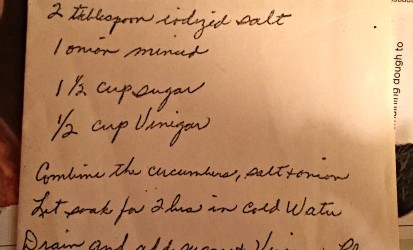 2 tablespoon iodized salt
1 onion minced
1 1/2 cup sugar
1/2 cup Vinigar
Combine the cucumbers, salt + onion
Let soak for 2 hrs in cold Water
Drain and add sugar + Vin
aining dough to